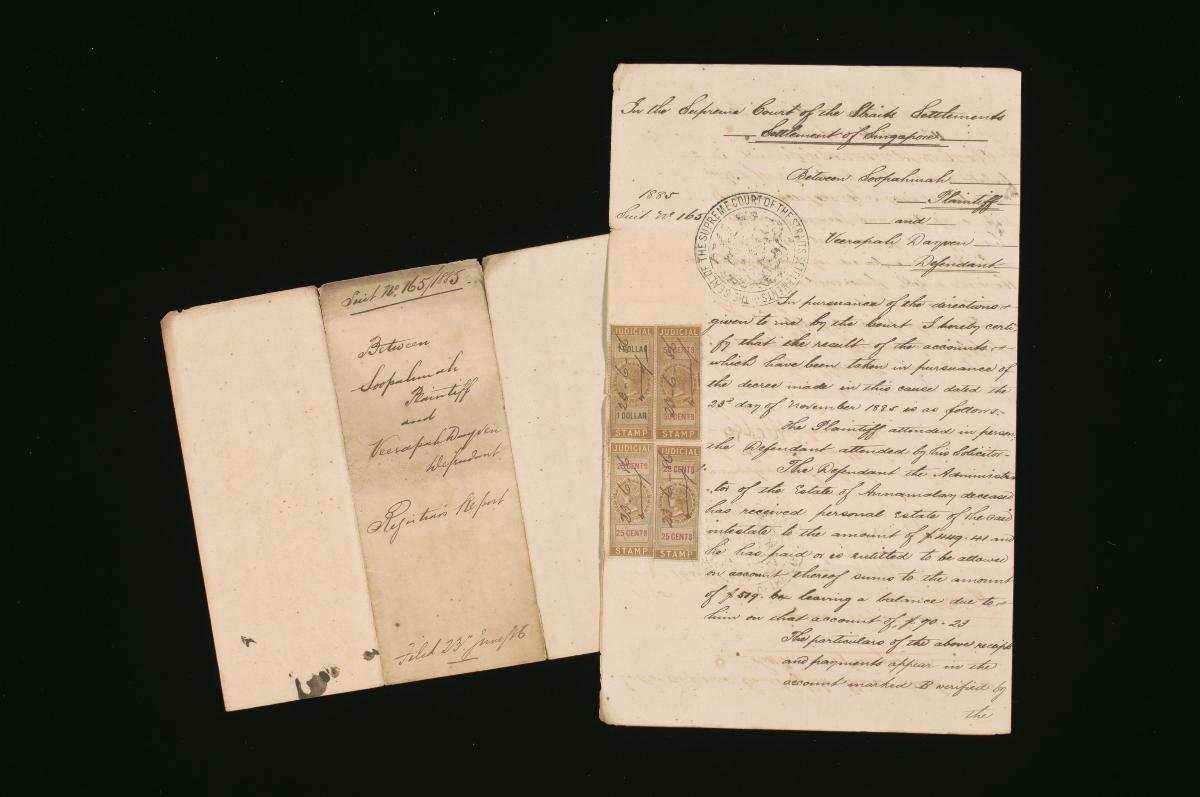 Suit No. 165/1885.
Between
Soopahmah
Plaintiff
and
Veerapah Dayven
Defendant
Registrar's Report
Filed 23rd June/86
In the Supreme Court of the Straits Settlements
Settlement of Singapore
Between Soopahmah
1885
Plaintiff
Suit No 165
and
Veerapah Dayven
Defendant
THE SEAL OF THE SUPREME COURT OF THE STRAITS SETTLEMENTS
In pursuance of the directions
given to me by the Court I hereby certi
fy that the result of the accounts
which have been taken in pursuance of
the decree made in this cause dated the
23d day of November 1885 is as follows:
The Plaintiff attended in person,
the Defendant attended by his Solicitor
The Defendant the Administra
tor of the Estate of Annamalay deceased
has received personal Estate of the said
intestate to the amount of $449.41 and
he has paid or is entitled to be allowed
on account thereof sums to the amount
of $519. leaving a balance due to
him on that account of $90.23
The particulars of the above receipts
and payments appear in the
account marked B verified by
the
JUDICIAL
1 DOLLAR
23.6.86
1 DOLLAR
STAMP
JUDICIAL
50 CENTS
23.6.86
50 CENTS
STAMP
JUDICIAL
25 CENTS
23.6.86
25 CENTS
STAMP
JUDICIAL
25 CENTS
25 CENTS
STAMP